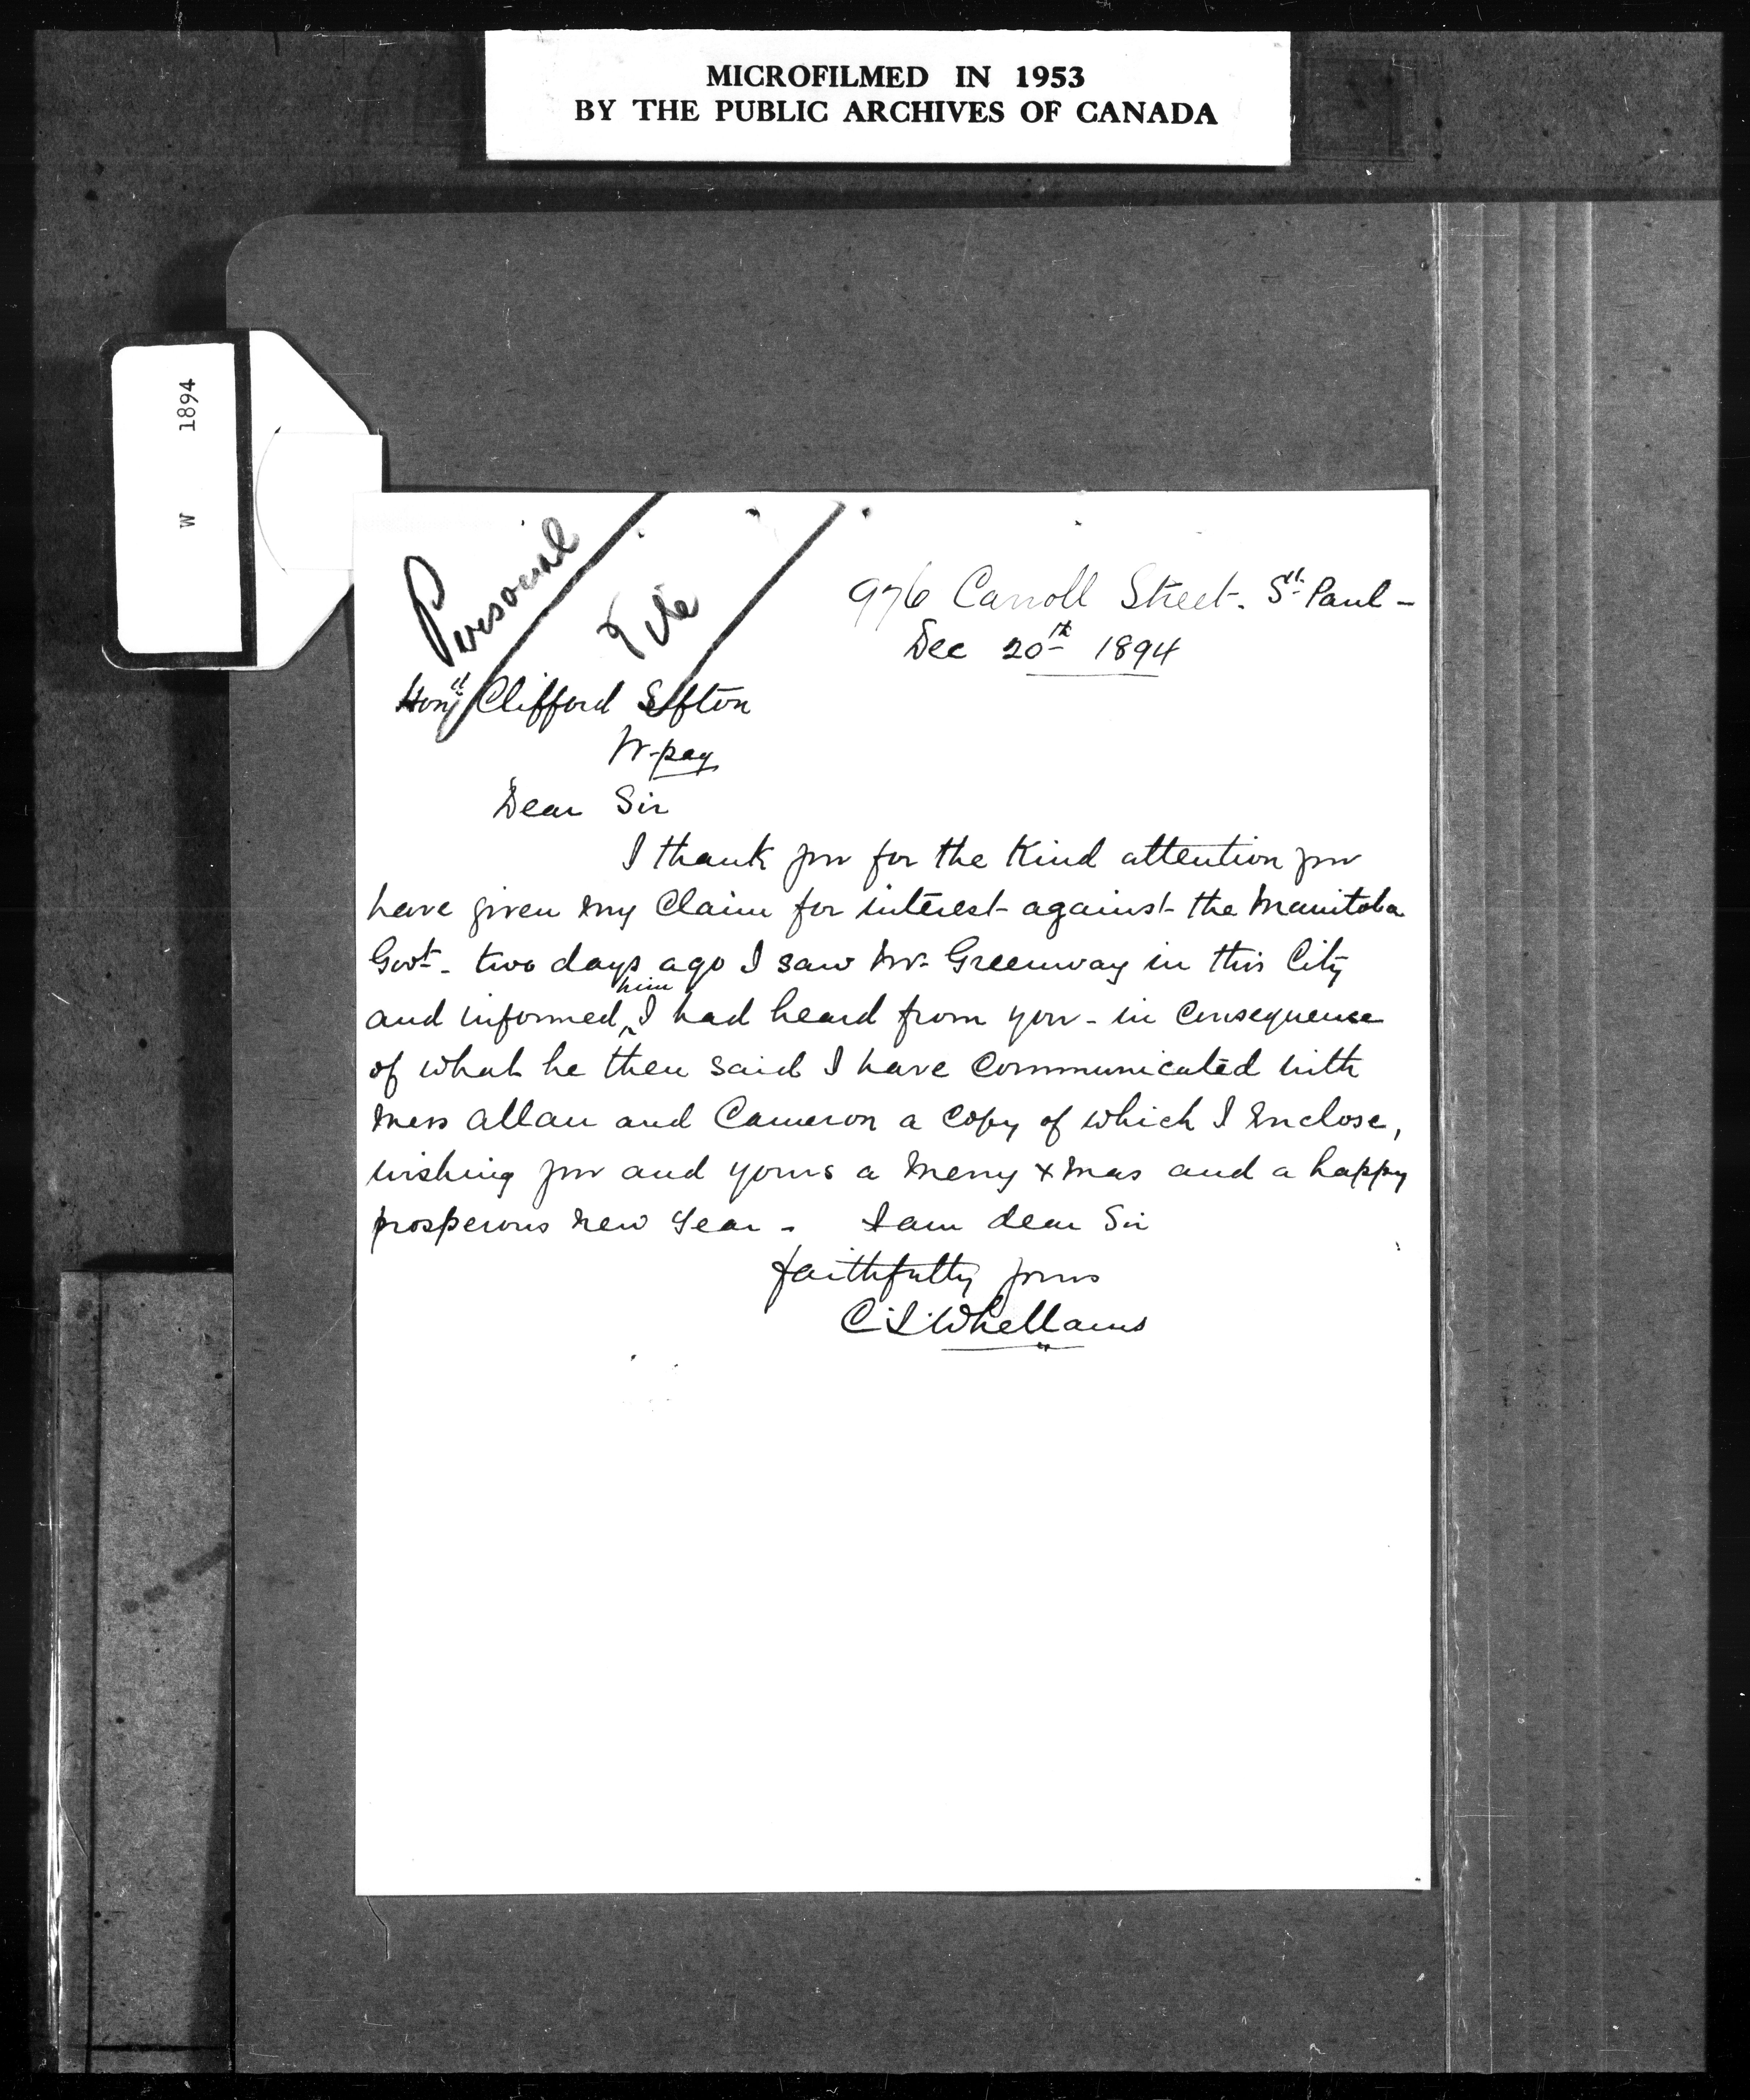 MICROFILMED IN 1953
BY THE PUBLIC ARCHIVES OF CANADA
W 1894
Personal
File
976 Carroll Street. St. Paul -
Dec 20th 1894
Clifford Sifton
W-peg
Dear Sir
I thank you for the Kind attention you
have given my Claim for interest against the Manitoba
Govt - two days ago I saw Mr. Greenway in this City
and informed him I had heard from you - in Consequence
of what he then said I have Communicated with
Mess Allan and Cameron a Copy of which I Enclose,
wishing you and yours a Merry Xmas and a happy
prosperous New Year - I am dear Sir
faithfully yours
C. S. Whellams